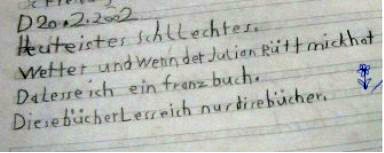 D20.2.2002
Heuteistes schllechtes.
Wetter und wenn der Julian Rütt mick hat
Daleseich ein franz buch.
Diesebücher Lesseich nurdirebücher.